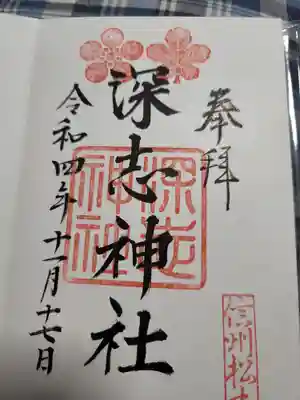 奉拝
深志神社
深志
神社
令和四年十一月十七日
信州松本